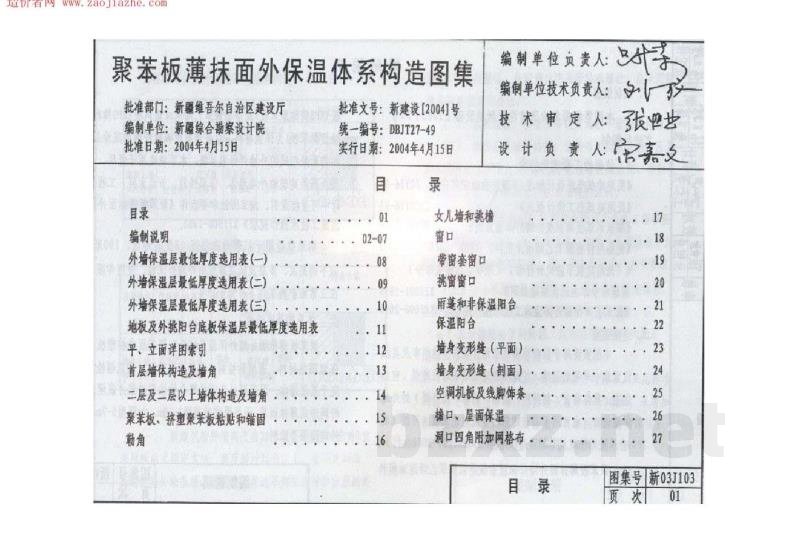 造价者网 www.zaojiazhe.com
聚苯板薄抹面外保温体系构造图集
批准部门: 新疆维吾尔自治区建设厅
编制单位: 新疆综合勘察设计院
批准日期: 2004年4月15日
批准文号: 新建设[2004]号
统一编号: DBJT27-49
实行日期: 2004年4月15日
编制单位负责人:
编制单位技术负责人:
技术审定人:
设计负责人: 宋嘉文
目 录
目录 01
编制说明 02-07
外墙保温层最低厚度选用表(一) 08
外墙保温层最低厚度选用表(二) 09
外墙保温层最低厚度选用表(三) 10
地板及外挑阳台底板保温层最低厚度选用表 11
平、立面详图索引 12
首层墙体构造及墙角 13
二层及二层以上墙体构造及墙角 14
聚苯板、挤塑聚苯板粘贴和锚固 15
勒角 16
女儿墙和挑檐 17
窗口 18
带窗套窗口 19
挑窗窗口 20
雨蓬和非保温阳台 21
保温阳台 22
墙身变形缝(平面) 23
墙身变形缝(剖面) 24
空调机板及线脚饰条 25
檐口、屋面保温 26
洞口四角附加网格布 27
bzxz.net
目 录
图集号 新03J103
页次 01